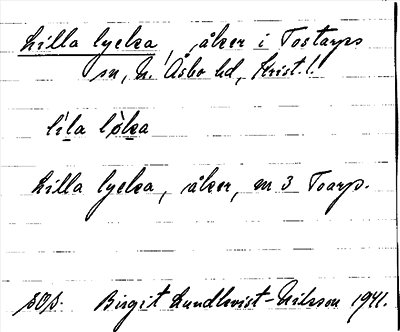 Lilla lycka, åker i Tostarps
sn, N. Åsbo hd, Krist. l.
lı́la lỳka
Lilla lycka, åker, m 3 Toarp.
sOp. Birgit Lundkvist-Nilsson 1941.